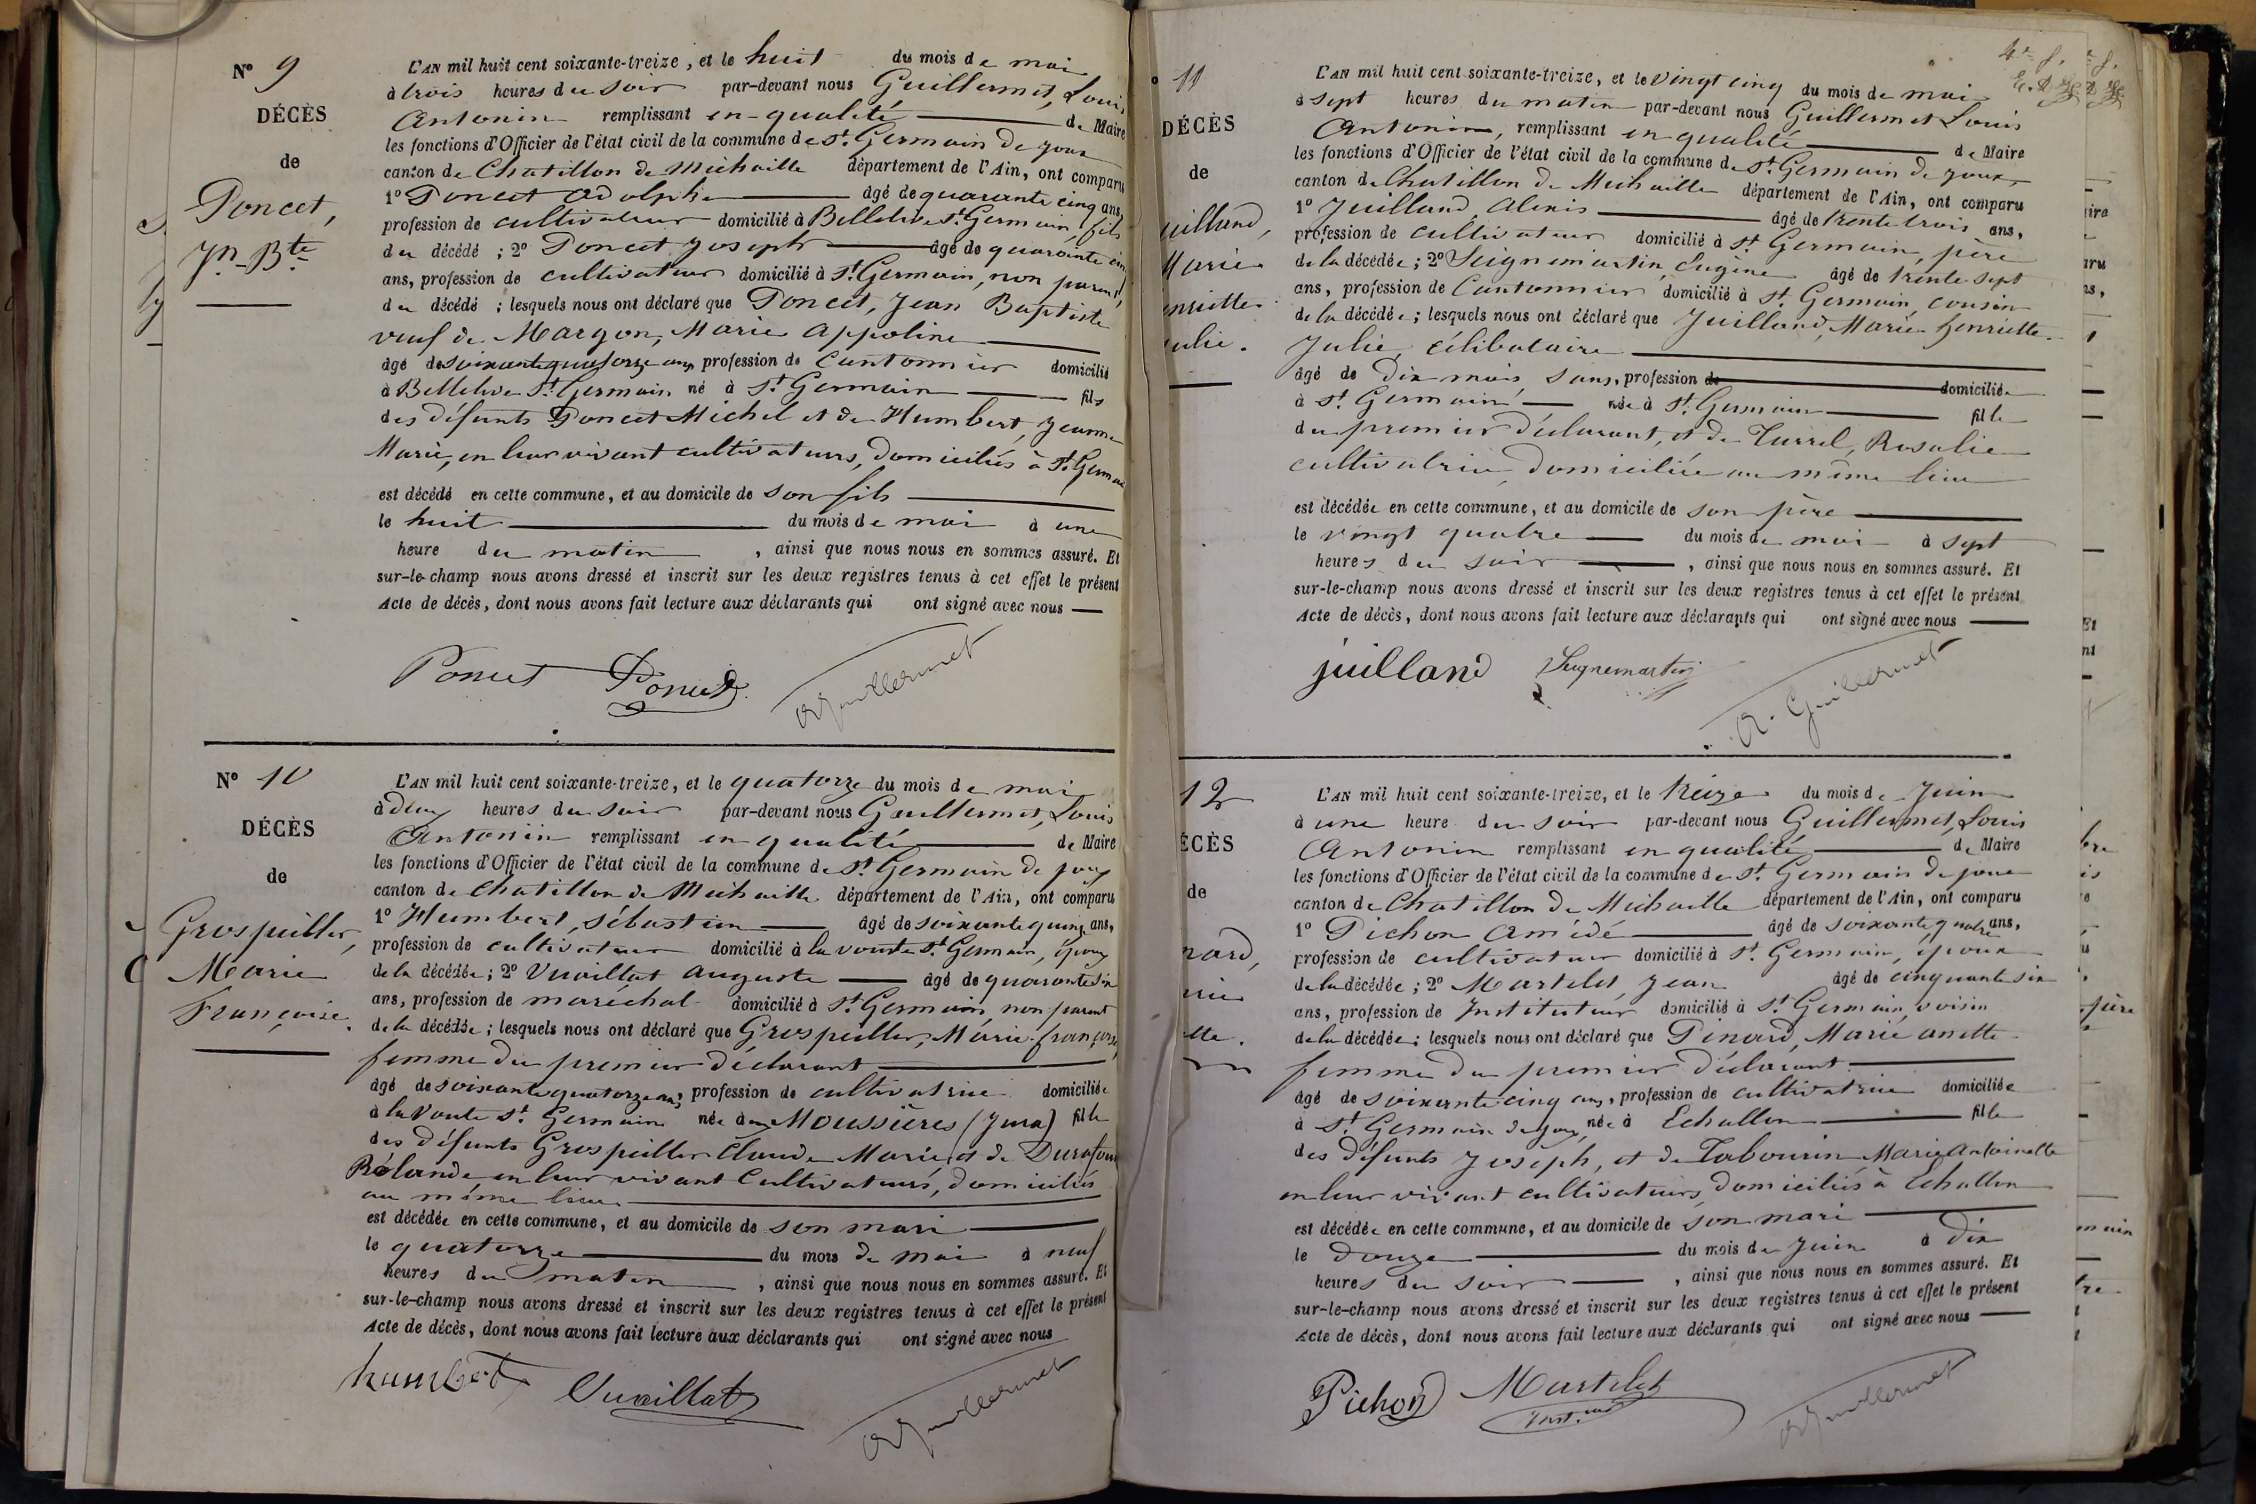 N° 9
DÉCÈS
de
Poncet,
Jn-Bte
L'AN mil huit cent soixante-treize, et le huit du mois de mai
à trois heures du soir par-devant nous Guillermet, Louis
Antonin remplissant en qualité de Maire
les fonctions d'Officier de l'état civil de la commune de St Germain de Joux
canton de Chatillon de Michaille département de l'Ain, ont comparu
1° Poncet Adolphe âgé de quarante cinq ans,
profession de cultivateur domicilié à Belleleve St Germain, fils
du décédé ; 2° Poncet Joseph âgé de quarante cinq
ans, profession de cultivateur domicilié à St Germain, non parent
du décédé ; lesquels nous ont déclaré que Poncet, Jean Baptiste
veuf de Margon, Marie Appoline
âgé de soixante quatorze ans, profession de Cantonnier domicilié
à Belleleve St Germain né à St Germain fils
des défunts Poncet Michel et de Humbert, Jeanne
Marie, en leur vivant cultivateurs, domiciliés à St Germain
est décédé en cette commune, et au domicile de son fils
le huit du mois de mai à une
heure du matin, ainsi que nous nous en sommes assuré. Et
sur-le-champ nous avons dressé et inscrit sur les deux registres tenus à cet effet le présent
Acte de décès, dont nous avons fait lecture aux déclarants qui ont signé avec nous
Poncet Poncet A Guillermet
N° 10
DÉCÈS
de
Grospiller,
Marie
Françoise.
L'AN mil huit cent soixante-treize, et le quatorze du mois de mai
à deux heures du soir par-devant nous Guillermet, Louis
Antonin remplissant en qualité de Maire
les fonctions d'Officier de l'état civil de la commune de St Germain de Joux
canton de Chatillon de Michaille département de l'Ain, ont comparu
1° Humbert, Sébastien âgé de soixante quinze ans,
profession de cultivateur domicilié à la voute St Germain, époux
de la décédée ; 2° Vuaillat Auguste âgé de quarante six
ans, profession de maréchal domicilié à St Germain, non parent
de la décédée ; lesquels nous ont déclaré que Grospiller, Marie françoise,
femme du premier déclarant
âgé de soixante quatorze ans, profession de cultivatrice domiciliée
à la Voute St Germain née aux Moussières (Jura) fille
des défunts Grospiller Claude Marie et de
en leur vivant Cultivateurs, domiciliés
au même lieu
est décédée en cette commune, et au domicile de son mari
le quatorze du mois de mai à neuf
heures du matin, ainsi que nous nous en sommes assuré. Et
sur-le-champ nous avons dressé et inscrit sur les deux registres tenus à cet effet le présent
Acte de décès, dont nous avons fait lecture aux déclarants qui ont signé avec nous
humbert Vuaillat A Guillermet
11
DÉCÈS
de
uilland,
Marie
enriette
ulie.
L'AN mil huit cent soixante-treize, et le vingt cinq du mois de mai
à sept heures du matin par-devant nous Guillermet Louis
Antonin, remplissant en qualité de Maire
les fonctions d'Officier de l'état civil de la commune de St Germain de Joux,
canton de Chatillon de Michaille département de l'Ain, ont comparu
1° Juilland, Alexis âgé de trente trois ans,
profession de cultivateur domicilié à St Germain, père
de la décédée ; 2° Seignemartin, Eugène âgé de trente sept
ans, profession de Cantonnier domicilié à St Germain, cousin
de la décédée ; lesquels nous ont déclaré que Juilland, Marie Henriette
Julie, célibataire
âgé de dix mois, sans, profession de domiciliée
à St Germain née à St Germain fille
du premier déclarant, et de Turrel, Rosalie
cultivatrice, domiciliée au même lieu
est décédée en cette commune, et au domicile de son père
le vingt quatre du mois de mai à sept
heures du soir, ainsi que nous nous en sommes assuré. Et
sur-le-champ nous avons dressé et inscrit sur les deux registres tenus à cet effet le présent
Acte de décès, dont nous avons fait lecture aux déclarants qui ont signé avec nous
juilland Seignemartin A. Guillermet
12
ÉCÈS
de
nard,
rie
tte.
L'AN mil huit cent soixante-treize, et le treize du mois de Juin
à une heure du soir par-devant nous Guillermet, Louis
Antonin remplissant en qualité de Maire
les fonctions d'Officier de l'état civil de la commune de St Germain de Joux
canton de Chatillon de Michaille département de l'Ain, ont comparu
1° Pichon Amédé âgé de soixante quatre ans,
profession de cultivateur domicilié à St Germain, époux
de la décédée ; 2° Martelet, Jean âgé de cinquante six
ans, profession de Instituteur domicilié à St Germain, voisin
de la décédée ; lesquels nous ont déclaré que Pinard, Marie anette
femme du premier déclarant
âgé de soixante cinq ans, profession de cultivatrice domiciliée
à St Germain de Joux, née à Echallon fille
des défunts Joseph, et de Tabourin Marie Antoinette
en leur vivant cultivateurs, domiciliés à Echallon
est décédée en cette commune, et au domicile de son mari
le douze du mois de Juin à dix
heures du soir, ainsi que nous nous en sommes assuré. Et
sur-le-champ nous avons dressé et inscrit sur les deux registres tenus à cet effet le présent
Acte de décès, dont nous avons fait lecture aux déclarants qui ont signé avec nous
Pichon Martelet A Guillermet